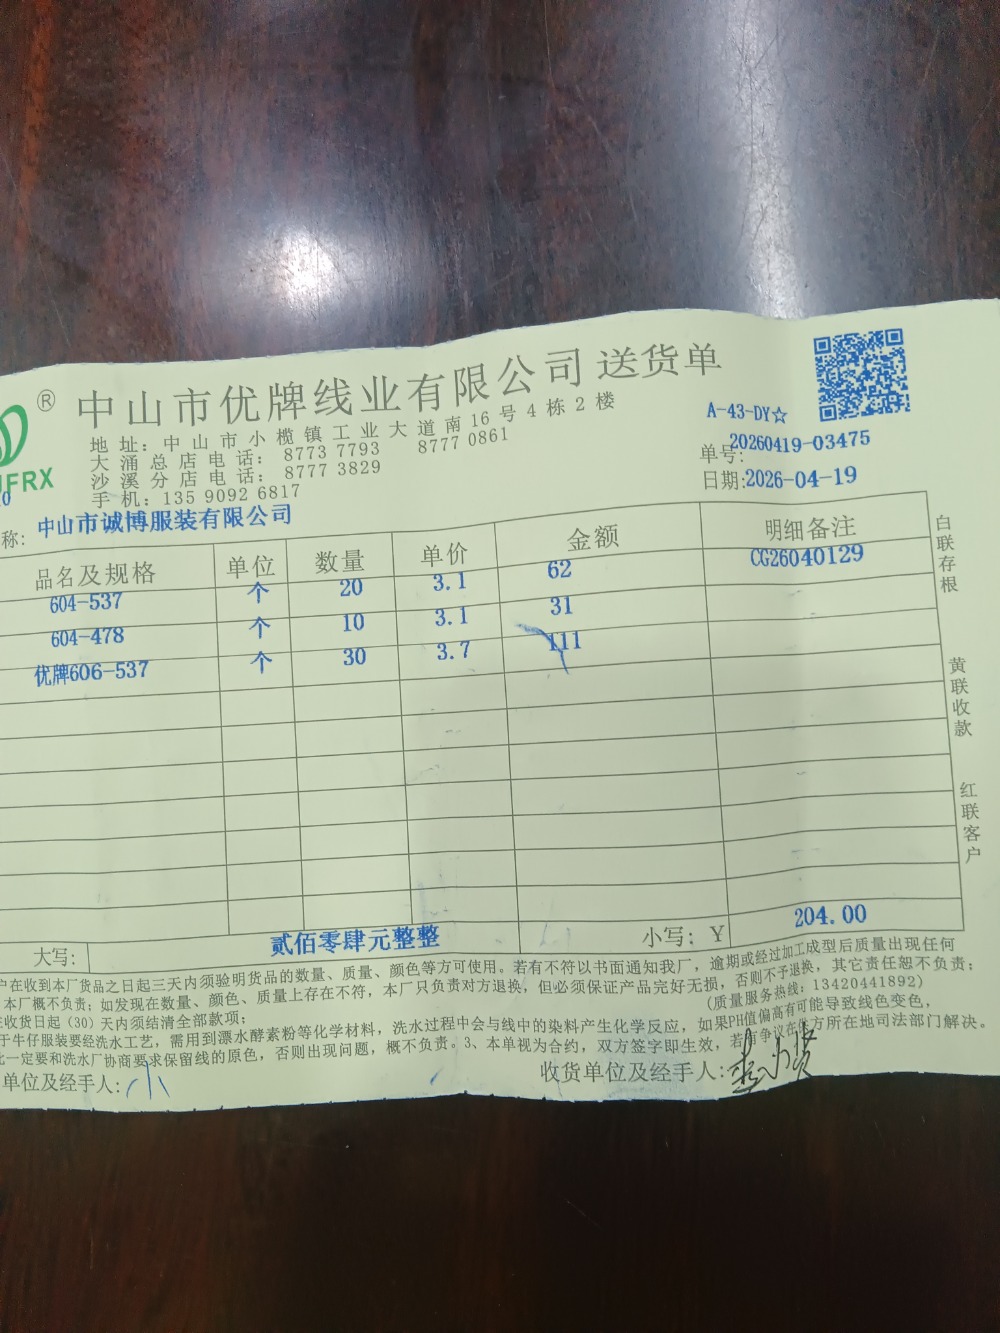 ®
中山市优牌线业有限公司 送货单
地址:中山市小榄镇工业大道南16号4栋2楼
大涌总店电话: 8773 7793 8777 0861
沙溪分店电话: 8777 3829
手机:135 9092 6817
A-43-DY☆
单号:20260419-03475
日期:2026-04-19
FRX
称: 中山市诚博服装有限公司
品名及规格 单位 数量 单价 金额 明细备注
604-537 个 20 3.1 62 CG26040129
604-478 个 10 3.1 31
优牌606-537 个 30 3.7 111
大写: 贰佰零肆元整整 小写: Y 204.00
白联存根
黄联收款
红联客户
户在收到本厂货品之日起三天内须验明货品的数量、质量、颜色等方可使用。若有不符以书面通知我厂，逾期或经过加工成型后质量出现任何
本厂概不负责；如发现在数量、颜色、质量上存在不符，本厂只负责对方退换，但必须保证产品完好无损，否则不予退换，其它责任恕不负责；
收货日起（30）天内须结清全部款项； (质量服务热线: 13420441892)
于牛仔服装要经洗水工艺，需用到漂水酵素粉等化学材料，洗水过程中会与线中的染料产生化学反应，如果PH值偏高有可能导致线色变色，
一定要和洗水厂协商要求保留线的原色，否则出现问题，概不负责。3、本单视为合约，双方签字即生效，若有争议在供方所在地司法部门解决。
单位及经手人: 小 收货单位及经手人: